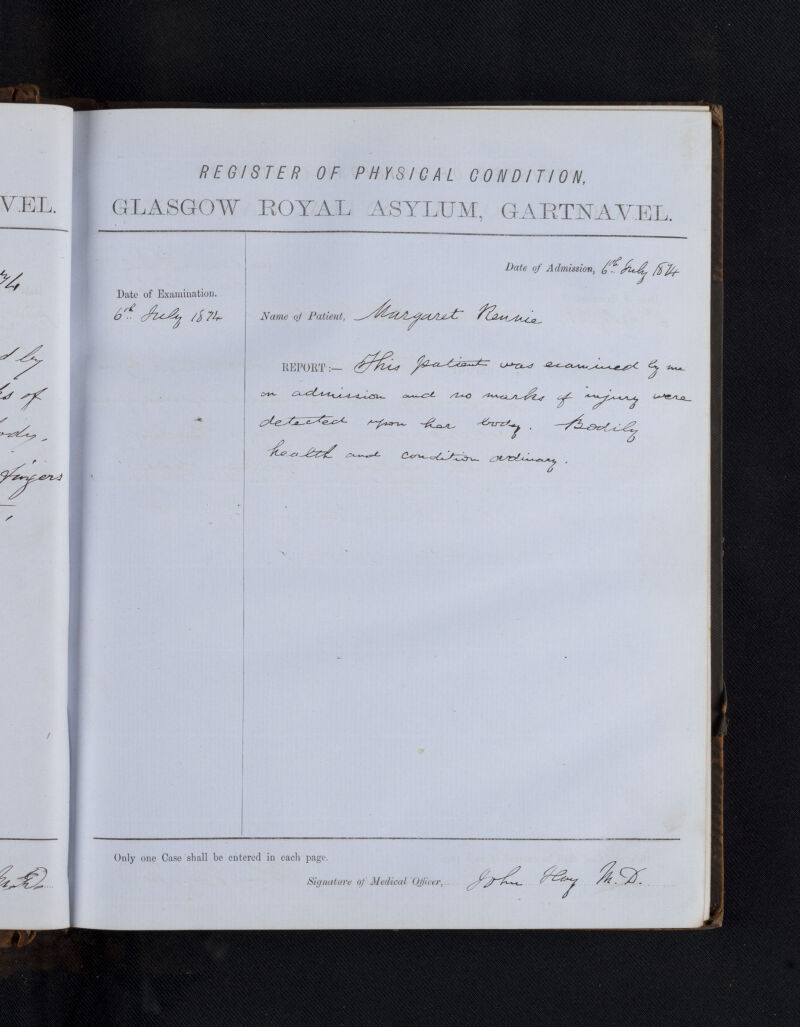 VEL.
d by
ks of
ody.
Fingers
REGISTER OF PHYSICAL CONDITION,
GLASGOW ROYAL ASYLUM, GARTNAVEL.
Date of Admission, 6th July 1874
Date of Examination.
6th July 1874
Name of Patient, Margaret Rennie
REPORT:— This patient was examined by me
on admission and no marks of injury were
detected upon her body. Bodily
health and condition ordinary.
Only one Case shall be entered in each page.
Signature of Medical Officer, John Hay M.D.